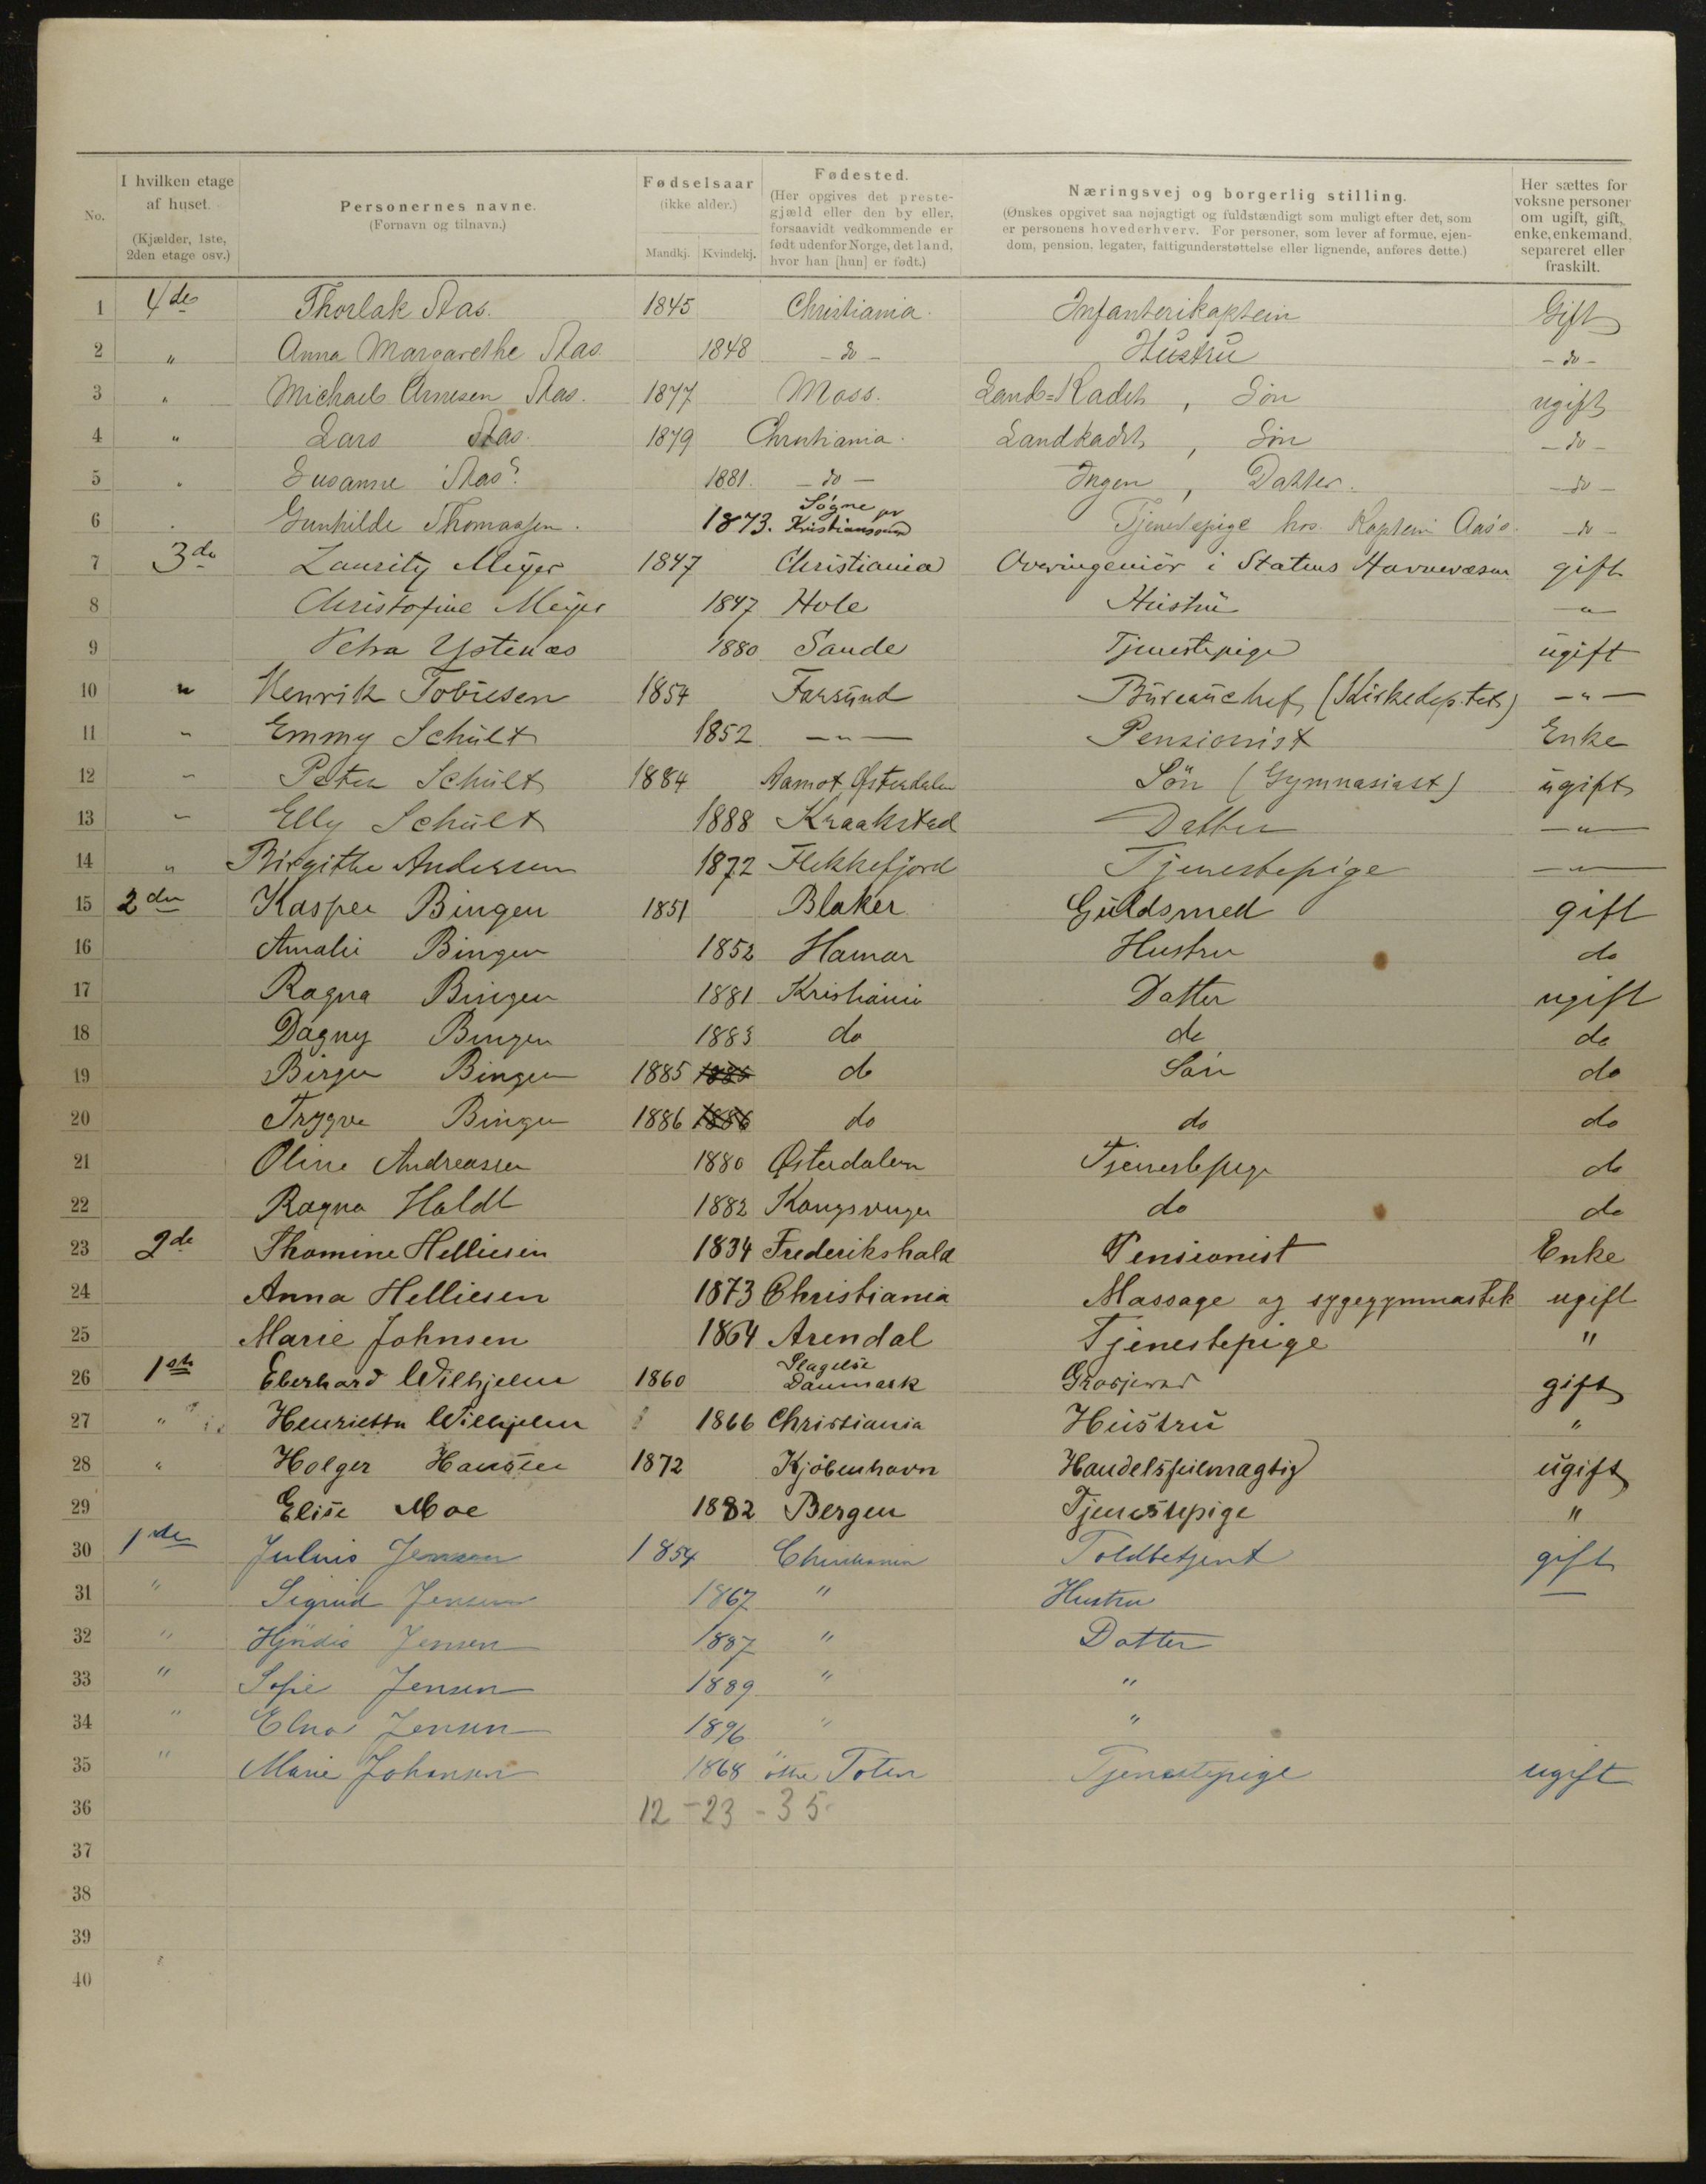 No.
I hvilken etage af huset.
(Kjælder, 1ste, 2den etage osv.)
Personernes navne.
(Fornavn og tilnavn.)
Fødselsaar
(ikke alder.)
Mandkj. Kvindekj.
Fødested.
(Her opgives det prestegjæld eller den by eller, forsaavidt vedkommende er født udenfor Norge, det land, hvor han [hun] er født.)
Næringsvej og borgerlig stilling.
(Ønskes opgivet saa nøjagtigt og fuldstændigt som muligt efter det, som er personens hovederhverv. For personer, som lever af formue, ejendom, pension, legater, fattigunderstøttelse eller lignende, anføres dette.)
Her sættes for voksne personer om ugift, gift, enke, enkemand, separeret eller fraskilt.
1 4de Thorlak Aas. 1845 Christiania. Infanterikaptein Gift
2 " Anna Margarethe Aas. 1848 - do - Hustru - do -
3 " Michael Arnesen Aas. 1877 Moss. Land=Kadet, Søn ugift
4 " Lars Aas. 1879 Christiania. Landkadet, Søn - do -
5 " Susanne Aas. 1881. - do - Ingen, Datter. - do -
6 " Gunhilde Thomassen. 1873. Søgne pr Kristianssand Tjenestepige hos Kaptein Aas. - do -
7 3de Lauritz Meyer 1847 Christiania Overingeniör i Statens Havnevæsen gift
8 Christofine Meyer 1847 Hole Hustru - " -
9 Petra Ystenæs 1880 Sande Tjenestepige ugift
10 " Henrik Tobiesen 1854 Farsund Bureauchef (Kirkedeptet) - " -
11 " Emmy Schult 1852 - " - Pensionist Enke
12 " Peter Schult 1884 Aamot Østerdalen Sön (Gymnasiast) ugift
13 " Elly Schult 1888 Kraakstad Datter - " -
14 " Birgithe Andersen 1872 Flekkefjord Tjenestepige - " -
15 2den Kasper Bingen 1851 Blaker Guldsmed gift
16 Amalie Bingen 1852 Hamar Hustru do
17 Ragna Bingen 1881 Kristiania Datter ugift
18 Dagny Bingen 1883 do do do
19 Birger Bingen 1885 1885 do Søn do
20 Trygve Bingen 1886 1886 do do do
21 Oline Andreassen 1880 Østerdalen Tjenestepige do
22 Ragna Holdt 1882 Kongsvinger do do
23 2de Thomine Helliesen 1834 Frederikshald Pensionist Enke
24 Anna Helliesen 1873 Christiania Massage og sygegymnastik ugift
25 Marie Johnsen 1864 Arendal Tjenestepige "
26 1ste Eberhard Wilhjelm 1860 Slagelse Danmark Grosserer gift
27 " Henrietta Wilhjelm 1866 Christiania Hustru "
28 " Holger Hanssen 1872 Kjöbenhavn Handelsfuldmægtig ugift
29 Elise Moe 1882 Bergen Tjenestepige "
30 1ste Julius Jensen 1854 Christiania Toldbetjent gift
31 " Sigrid Jensen 1867 " Hustru —
32 " Hjördis Jensen 1887 " Datter
33 " Sofie Jensen 1889 " "
34 " Elna Jensen 1896 " "
35 " Marie Johansen 1868 östre Toten Tjenestepige ugift
36 12 - 23 - 35
37
38
39
40